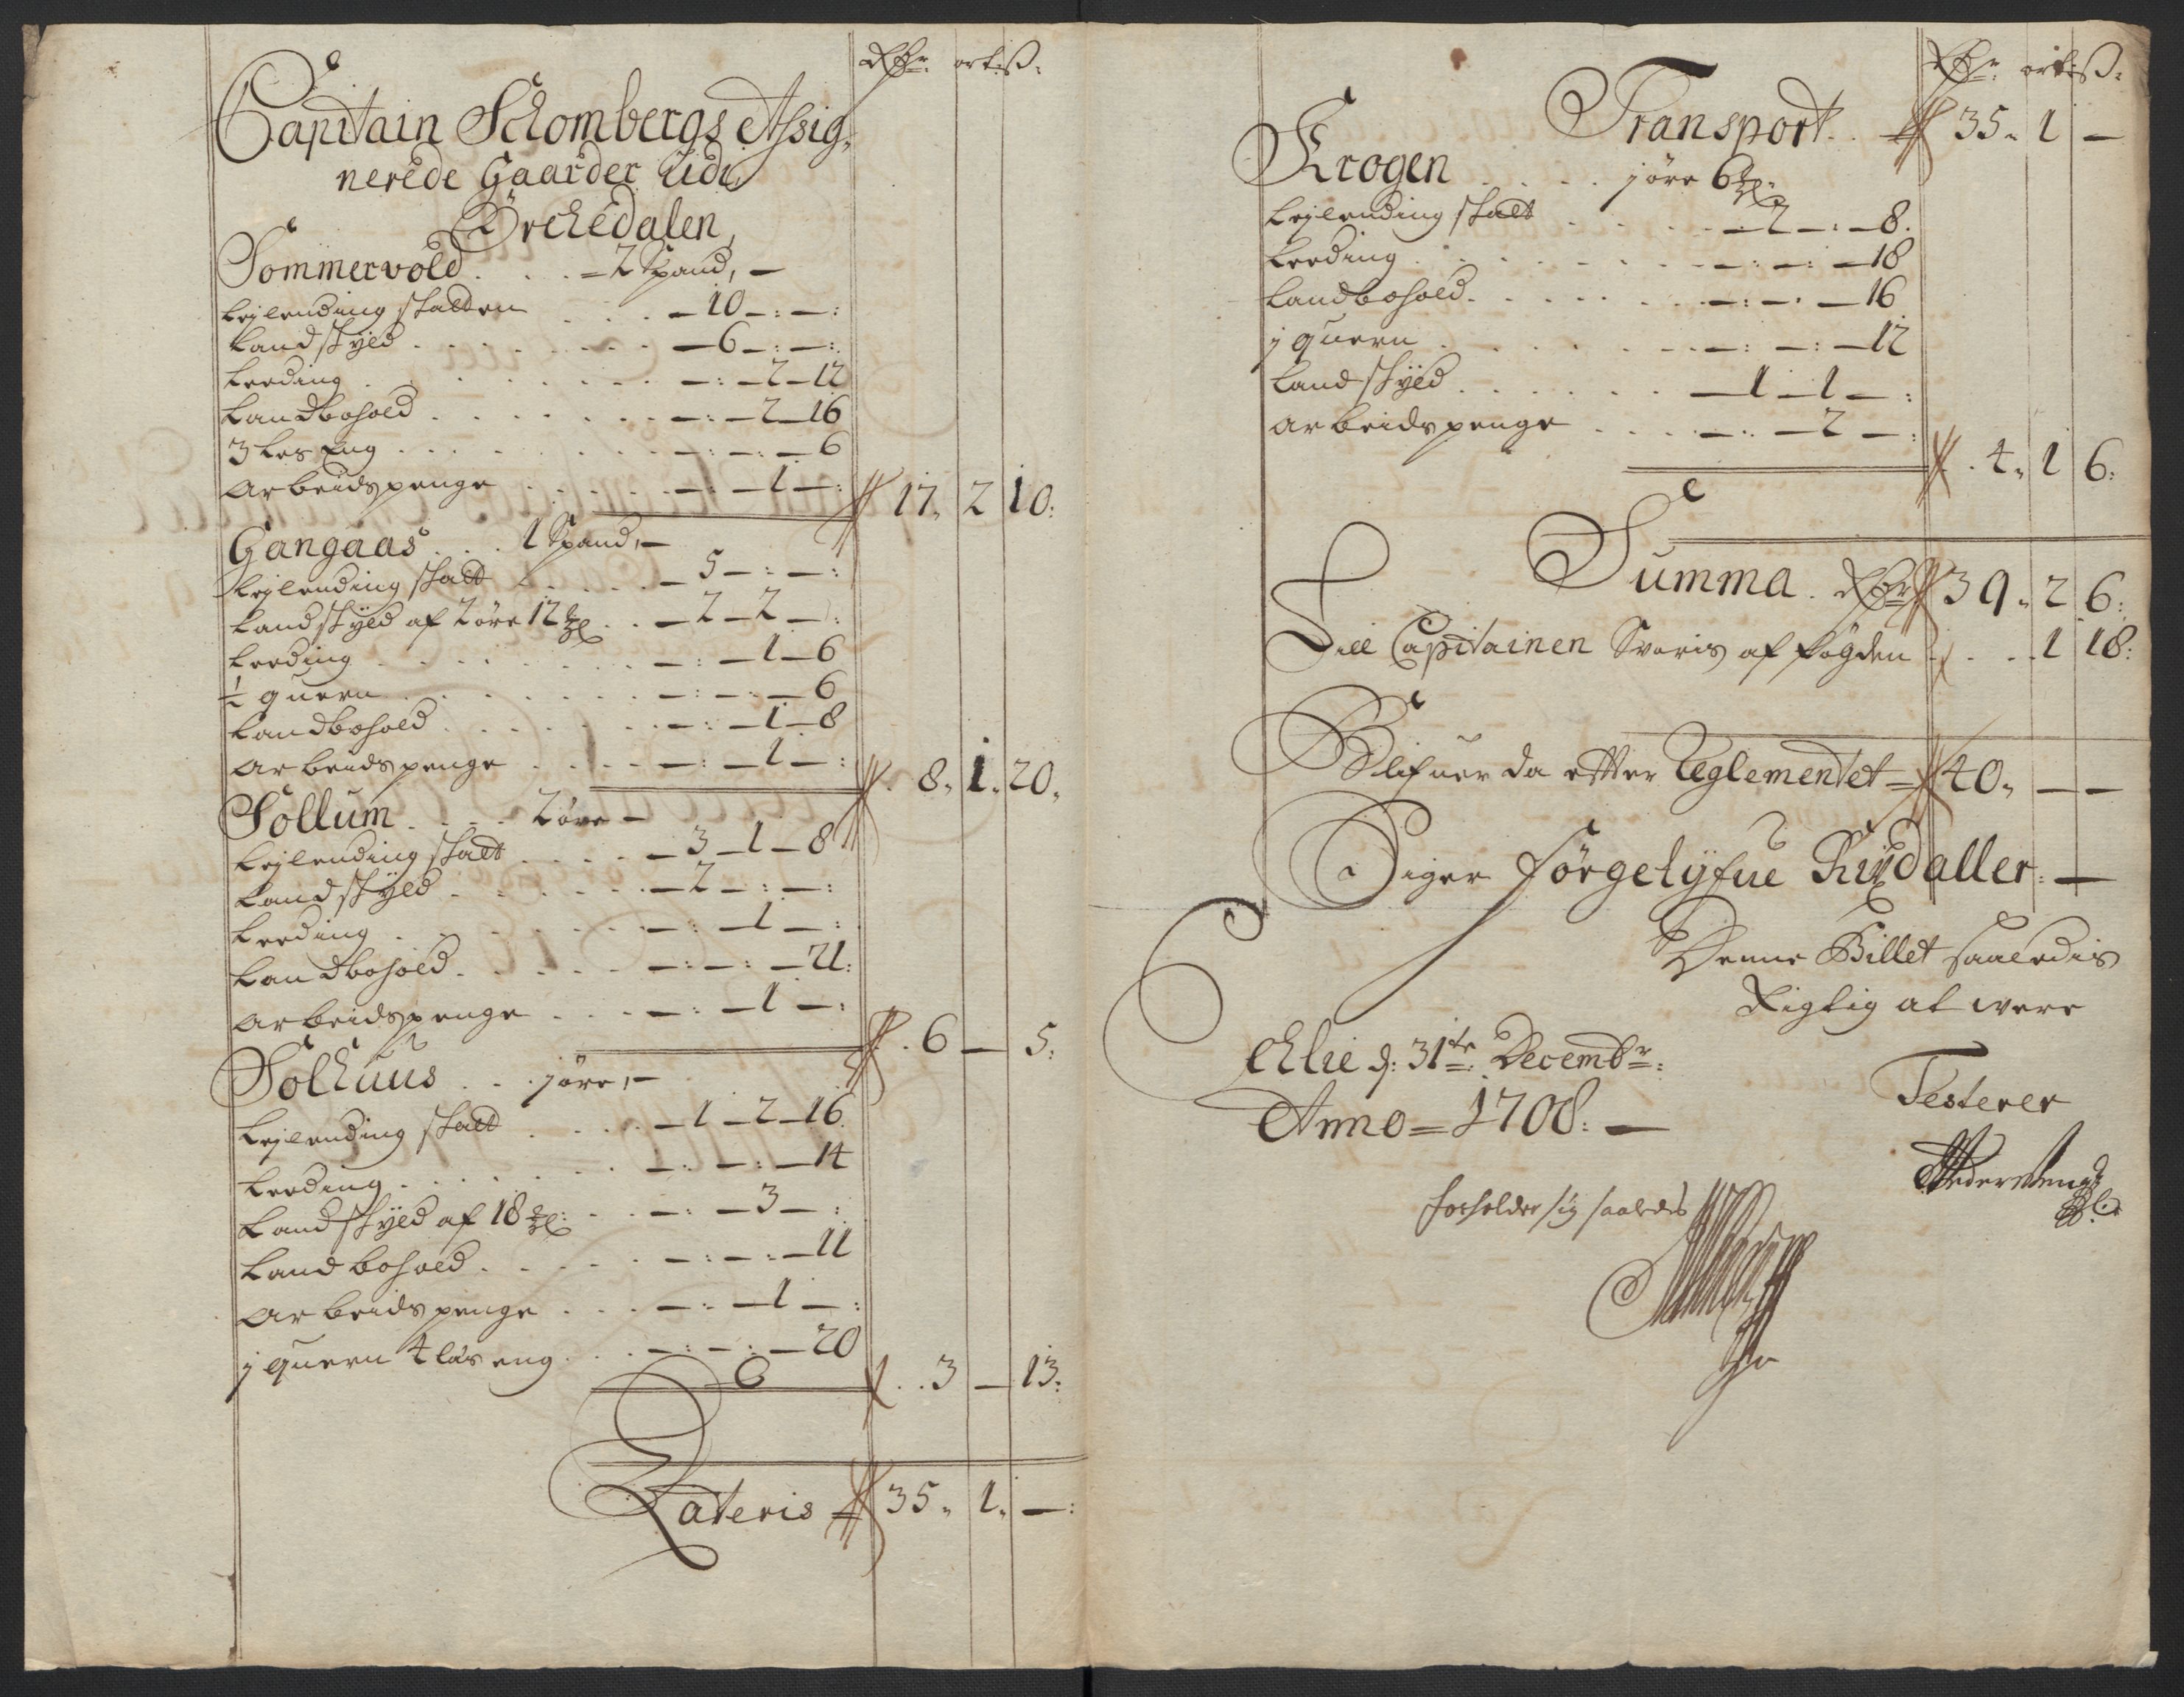 Rdr. ort. ß.
Capitain Schombergs Assig-
nerede Gaarder Udi
Örchedalen,
Sommervold . . . . 2 Spand, —
Lejlending skatten . . . — 10 — : — :
Landskyld . . . . . . — 6 — : — :
Leeding . . . . . . — : — 2 — 12
Landbohold . . . . . — : — 2 — 16
3 Les Eng . . . . . . — : — : — 6
Arbeidspenge . . . . . — : — 1 — : 17. 2 10:
Gangaas . . . 1 Spand, —
Lejlending skatt . . . . — 5 — : — :
Landskyld af 2 öre 12 . . — 2 — 2 — :
Leeding . . . . . . — : — 1 — 6
½ quern . . . . . . — : — : — 6
Landbohold . . . . . — : — 1 — 8
Arbeidspenge . . . . — : — 1 — : 8. 1. 20.
Sollum . . . . 2 öre —
Lejlending skatt . . . . — 3 — 1 — 8
Landskyld . . . . . — 2 — : — :
Leeding . . . . . . — : — 1 — :
Landbohold . . . . . — : — : — 21:
Arbeidspenge . . . — : — 1 — : 6 — 5:
Solhuus . . . j öre, —
Lejlending skatt . . . . — 1 — 2 — 16.
Leeding . . . . . . — : — : — 14
Landskyld af 18 . . . — : — 3 — :
Landbohold . . . . . — : — : — 11
Arbeidspenge . . . — : — 1 — :
j quern 4 läs eng . . . — : — : — 20
3 — 13:
Lateris 35. 1. — :
Rdr. ort. ß.
Transport . . 35. 1 —
Krogen . . . . . j öre 6
Lejlending skatt . . . . — 2 — : — 8.
Leeding . . . . . . — : — : — 18
Landbohold . . . . . — : — : — 16
j quern . . . . . . — : — : — 12
Landskyld . . . . . . — 1 — 1 — :
Arbeidspenge . . . . — : — 2 — :
4. 1 6:
Summa . Rdr 39. 2 6:
Till Capitainen Svaris af fogden . . . 1 18:
Blifuer da etter Reglementet = 40. — —
Siger förgetyfue Rixdaller: —
Denne Billet saaledis
Rigtig at were
Elie d: 31te Decembr:
Testerer
Anno = 1708: —
forholder sig saaledes